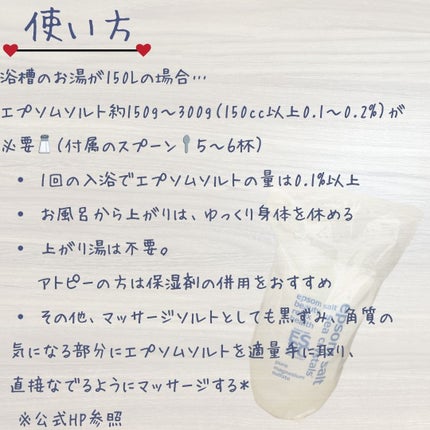 使い方
浴槽のお湯が150Lの場合…
エプソムソルト約150g〜300g(150cc以上0.1〜0.2%)が
必要🧂(付属のスプーン🥄5〜6杯)
• 1回の入浴でエプソムソルトの量は0.1%以上
• お風呂から上がりは、ゆっくり身体を休める
• 上がり湯は不要。
アトピーの方は保湿剤の併用をおすすめ
• その他、マッサージソルトとしても黒ずみ、角質の
気になる部分にエプソムソルトを適量手に取り、
直接なでるようにマッサージする*
※公式HP参照
epsom salt
sea crystals
epsom salt